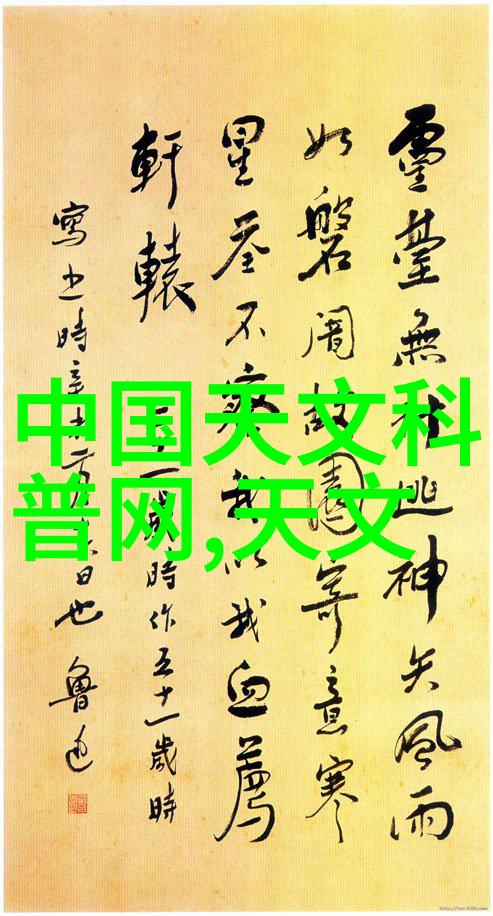 靈臺無計逃神矢風雨
如磐闇故園寄意寒
星荃不察我以我血薦
軒轅 二十一歲時作五十一歲時
寫之時辛未二月十六日也 魯迅
中国天文科
普网,天文